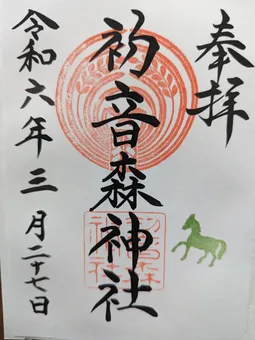 奉拝
初音森神社
令和六年三月二十七日
初音森神社